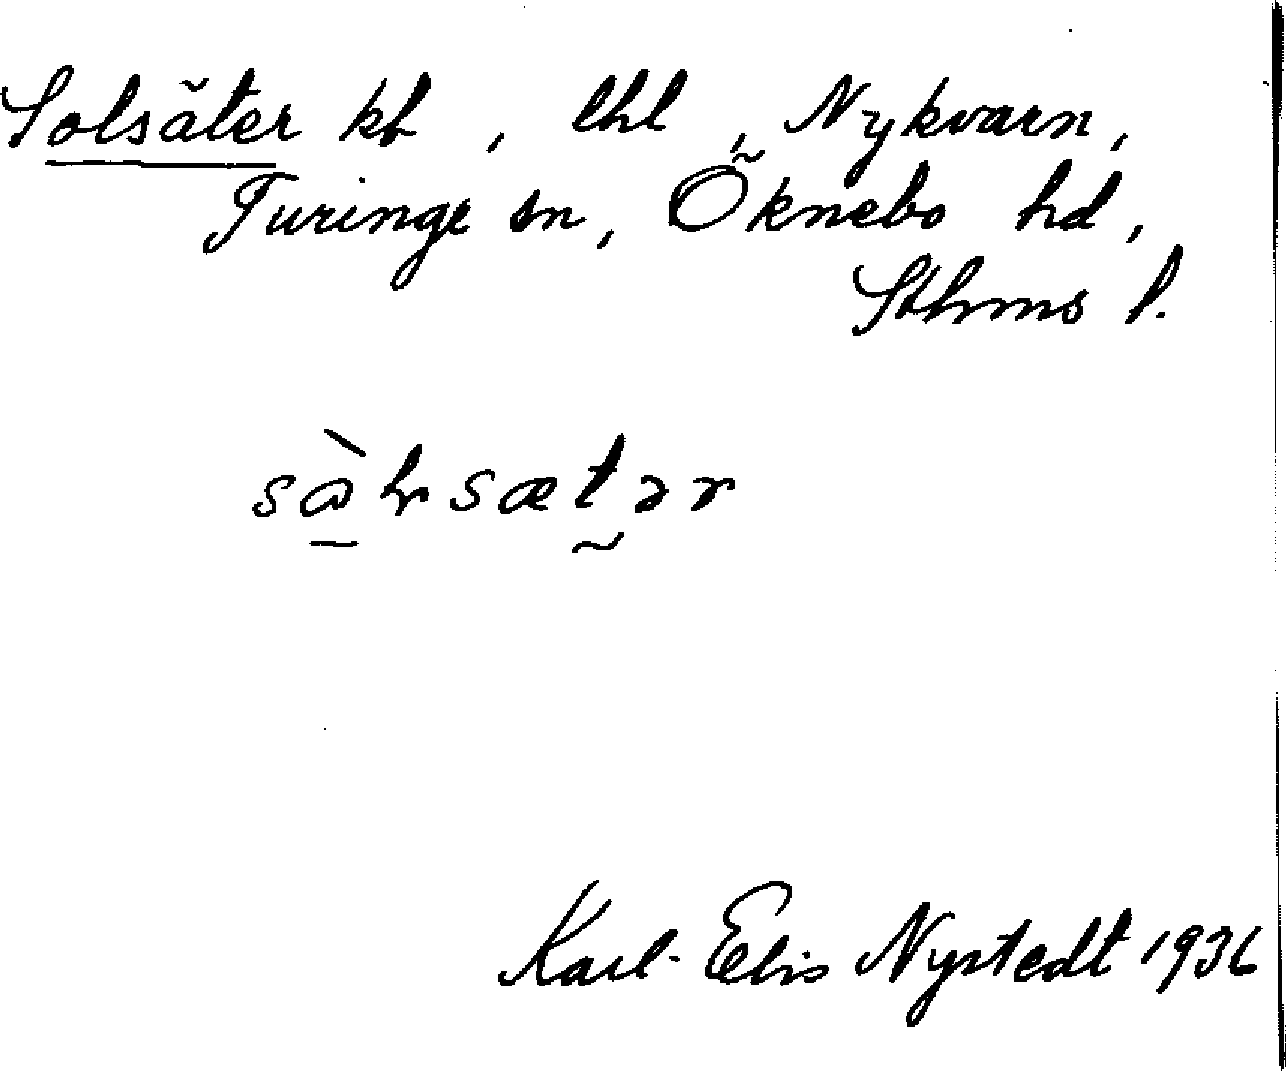 Solsäter kt, lhl, Nykvarn,
Turinge sn, Öknebo hd,
Sthms l.
Karl-Elis Nystedt 1936